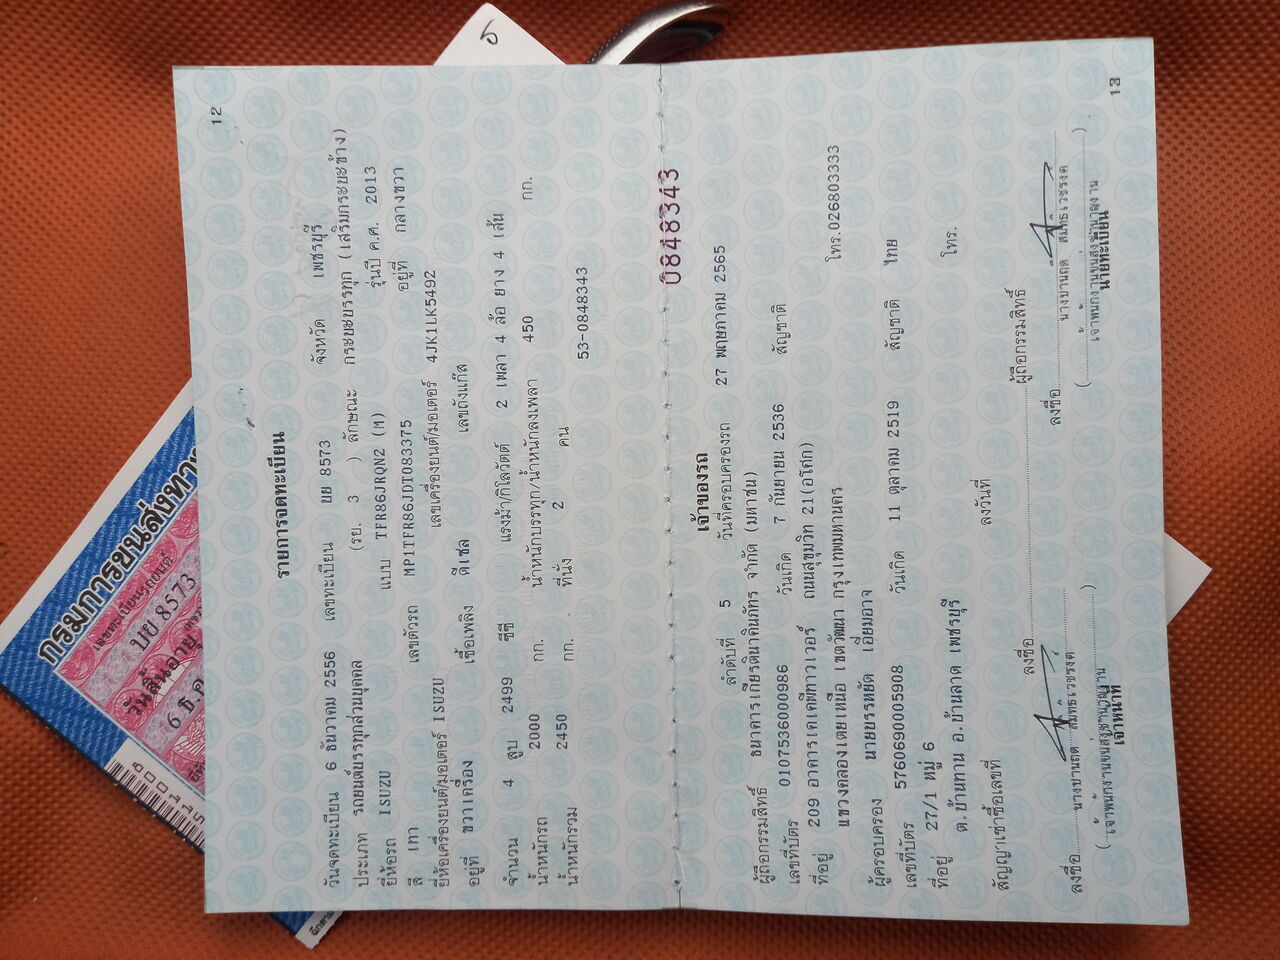 12
รายการจดทะเบียน
วันจดทะเบียน 6 ธันวาคม 2556 เลขทะเบียน บย 8573 จังหวัด เพชรบุรี
ประเภท รถยนต์บรรทุกส่วนบุคคล (รย. 3 ) ลักษณะ กระบะบรรทุก (เสริมกระบะข้าง)
ยี่ห้อรถ ISUZU แบบ TFR86JRQN2 (M) รุ่นปี ค.ศ. 2013
สี เทา เลขตัวรถ MP1TFR86JDT083375 อยู่ที่ กลางขวา
ยี่ห้อเครื่องยนต์/มอเตอร์ ISUZU เลขเครื่องยนต์/มอเตอร์ 4JK1LK5492
อยู่ที่ ขวาเครื่อง เชื้อเพลิง ดีเซล เลขถังแก๊ส
จำนวน 4 สูบ 2499 ซีซี แรงม้า/กิโลวัตต์ 2 เพลา 4 ล้อ ยาง 4 เส้น
น้ำหนักรถ 2000 กก. น้ำหนักบรรทุก/น้ำหนักลงเพลา 450 กก.
น้ำหนักรวม 2450 กก. ที่นั่ง 2 คน
53-0848343
0848343
เจ้าของรถ
ลำดับที่ 5 วันที่ครอบครองรถ 27 พฤษภาคม 2565
ผู้ถือกรรมสิทธิ์ ธนาคารเกียรตินาคินภัทร จำกัด (มหาชน)
เลขที่บัตร 0107536000986 วันเกิด 7 กันยายน 2536 สัญชาติ
ที่อยู่ 209 อาคารเคเคพีทาวเวอร์ ถนนสุขุมวิท 21(อโศก)
แขวงคลองเตยเหนือ เขตวัฒนา กรุงเทพมหานคร โทร.026803333
ผู้ครอบครอง นายบรรหยัด เอี่ยมอาจ
เลขที่บัตร 5760690005908 วันเกิด 11 ตุลาคม 2519 สัญชาติ ไทย
ที่อยู่ 27/1 หมู่ 6
ต.บ้านทาน อ.บ้านลาด เพชรบุรี โทร.
สัญญาเช่าซื้อเลขที่ ลงวันที่
ลงชื่อ ผู้ถือกรรมสิทธิ์
ลงชื่อ ลงชื่อ
เจ้าหน้าที่ นายทะเบียน
13
กรมการขนส่งทาง
บย 8573
วันสิ้นอายุ
6 ธ.ค
5